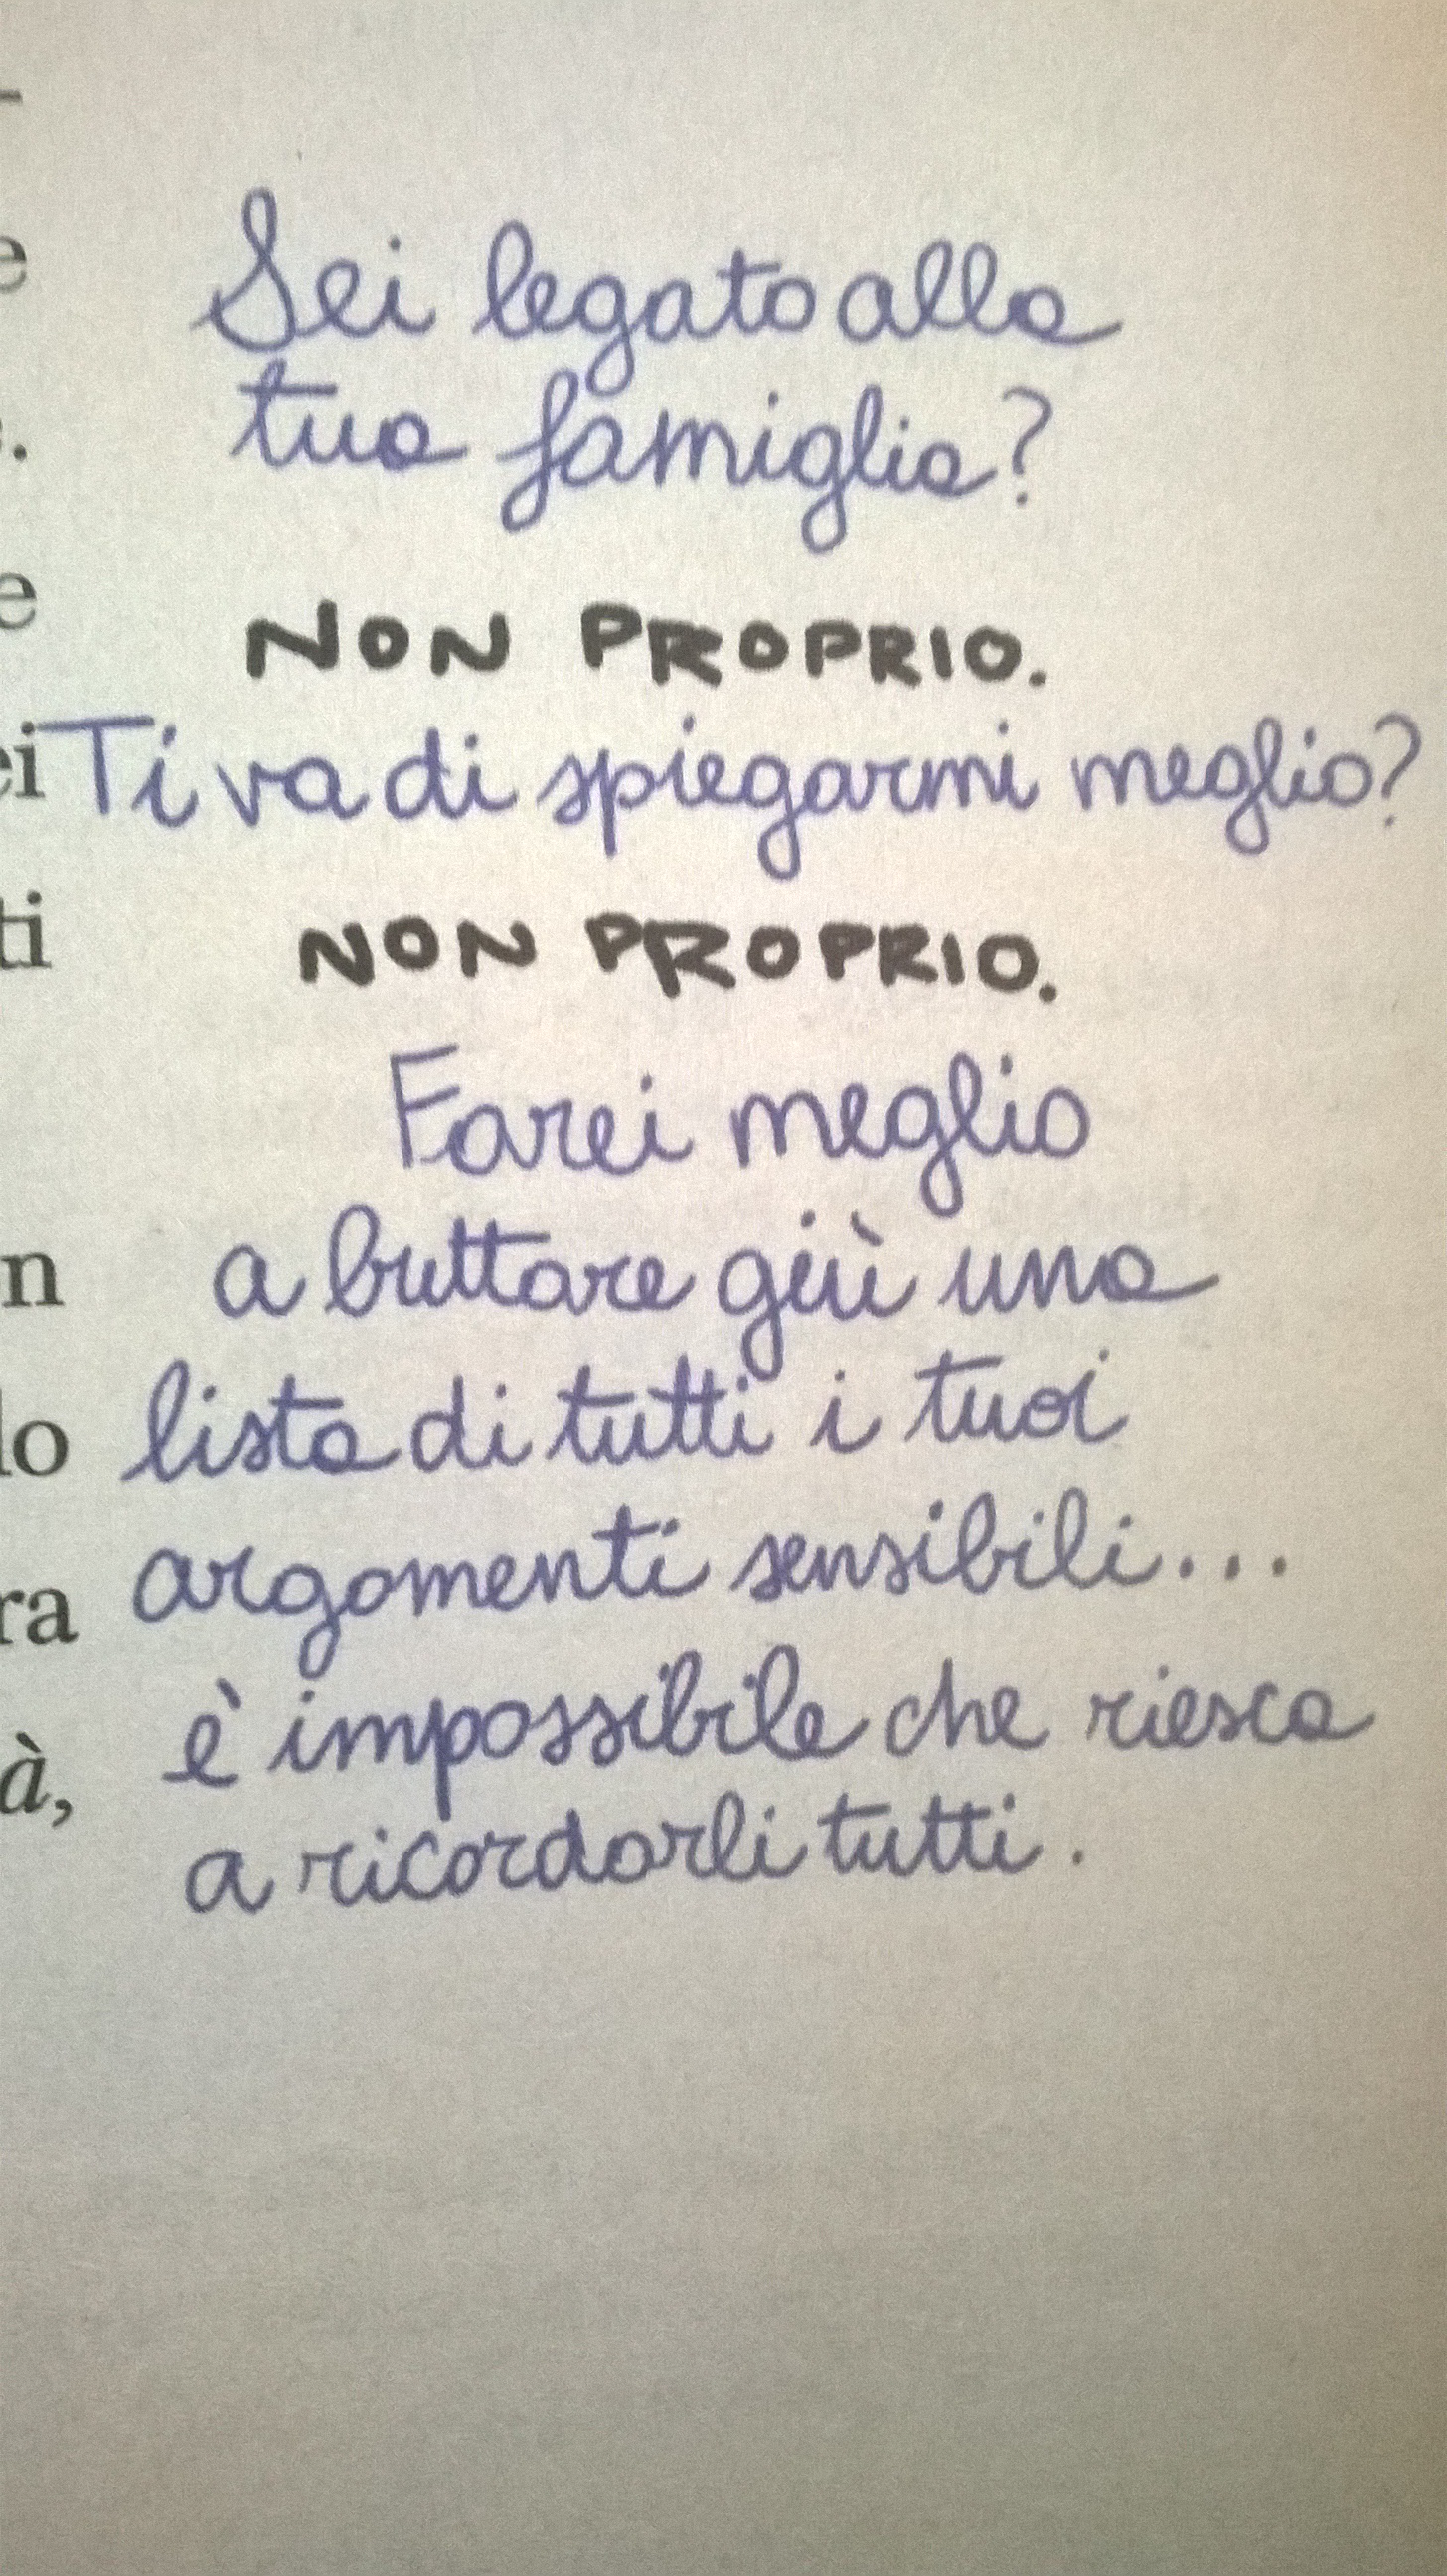 -
e
Sei legato alla
tua famiglia?
.
e
NON PROPRIO.
ei
Ti va di spiegarmi meglio?
ti
NON PROPRIO.
Farei meglio
n
a buttare giù una
lo
lista di tutti i tuoi
argomenti sensibili...
ra
è impossibile che riesca
à,
a ricordarli tutti.